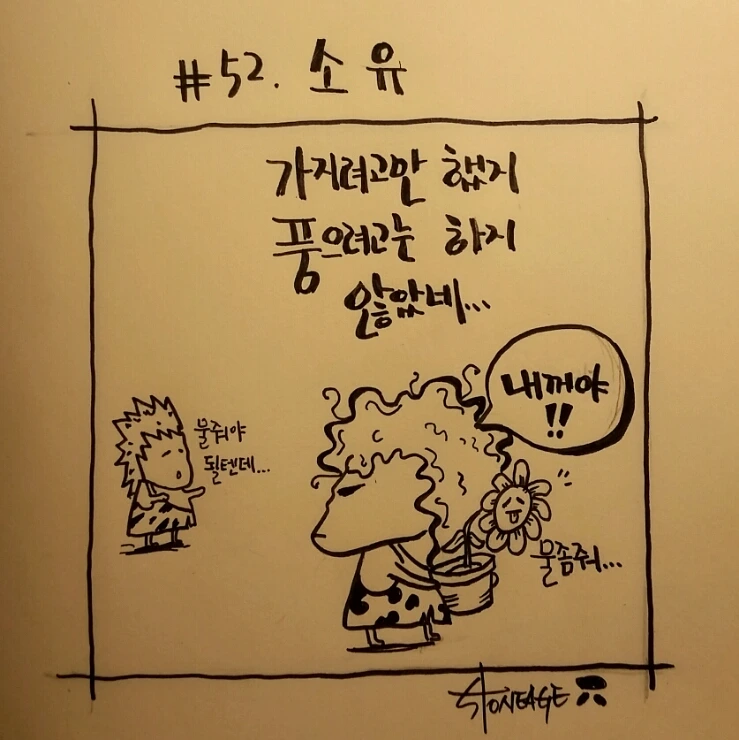 #52. 소유
가지려고만 했지
품으려고는 하지
않았네...
내꺼야
!!
물줘야
될텐데...
물좀줘...
STONEAGE